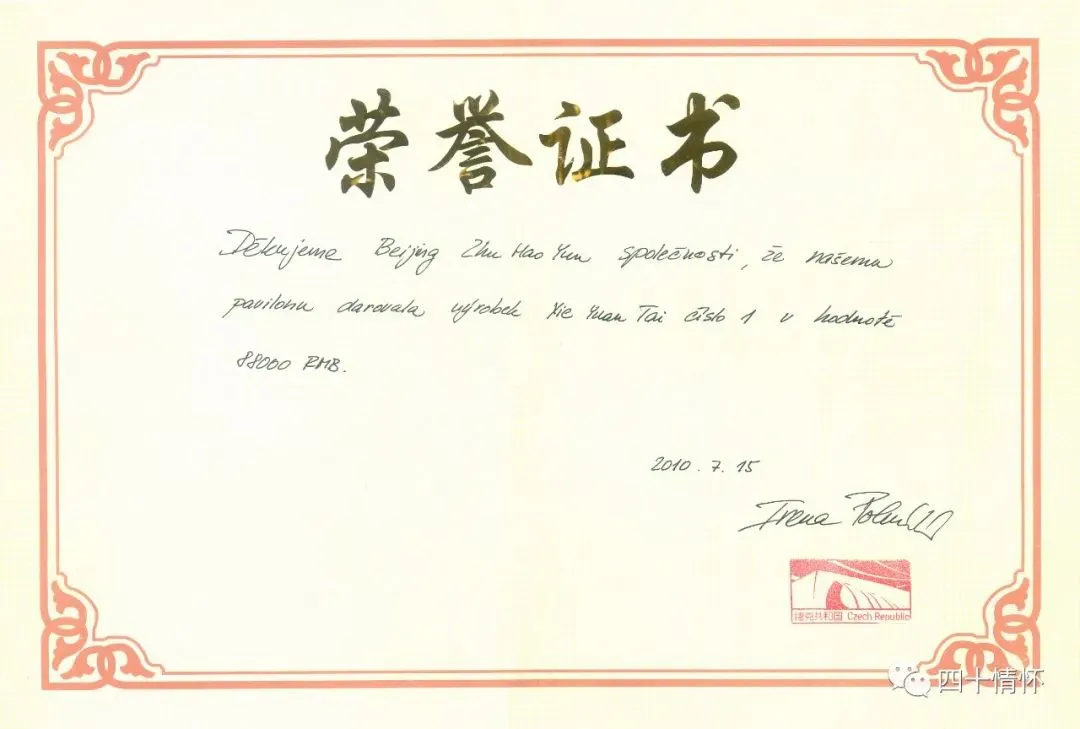 荣誉证书
Děkujeme Beijing Zhu Hao Yun společnosti, že našemu
pavilonu darovala výrobek Xie Yuan Tai číslo 1 v hodnotě
88000 RMB.
2010.7.15
Irena
捷克共和国 Czech Republic
四十情怀